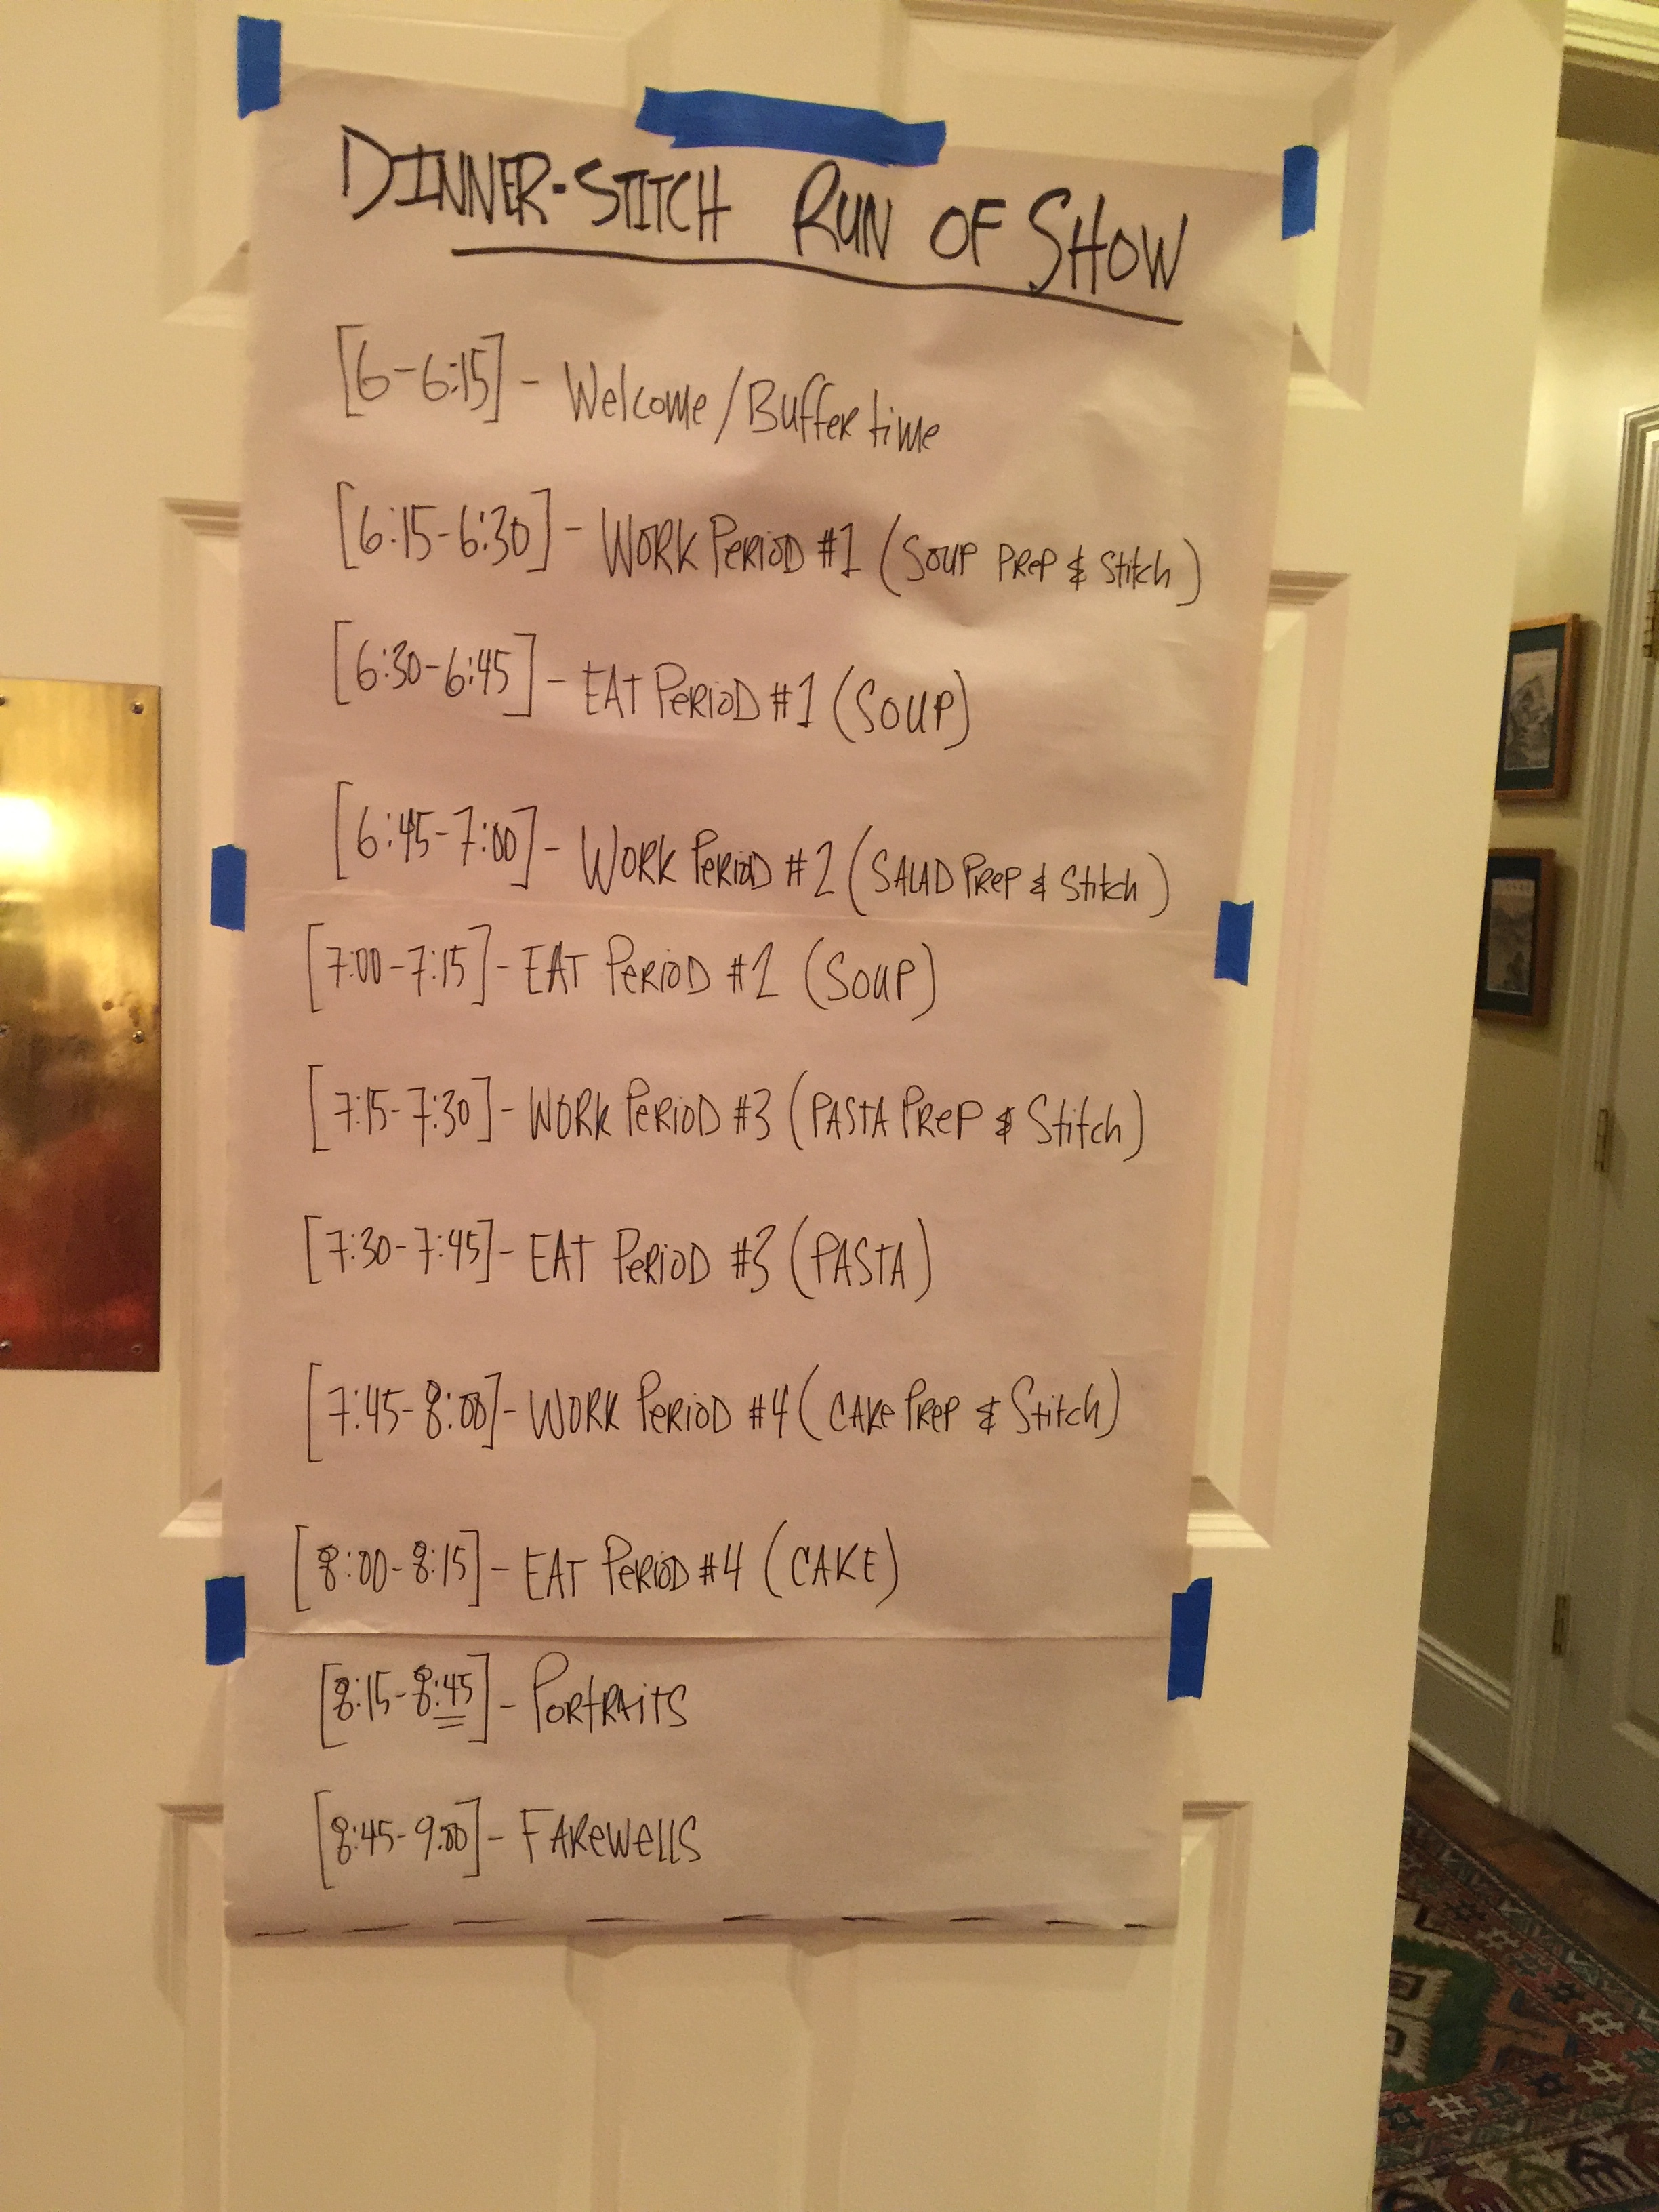 DINNER-STITCH RUN OF SHOW
[6-6:15] - Welcome/Buffer time
[6:15-6:30] - WORK PERIOD #1 (SOUP PREP & Stitch)
[6:30-6:45] - EAT PERIOD #1 (SOUP)
[6:45-7:00] - WORK PERIOD #2 (SALAD PREP & Stitch)
[7:00-7:15] - EAT PERIOD #2 (SOUP)
[7:15-7:30] - WORK PERIOD #3 (PASTA PREP & Stitch)
[7:30-7:45] - EAT PERIOD #3 (PASTA)
[7:45-8:00] - WORK PERIOD #4 (CAKE PREP & Stitch)
[8:00-8:15] - EAT PERIOD #4 (CAKE)
[8:15-8:45] - PORTRAITS
[8:45-9:00] - FAREWELLS